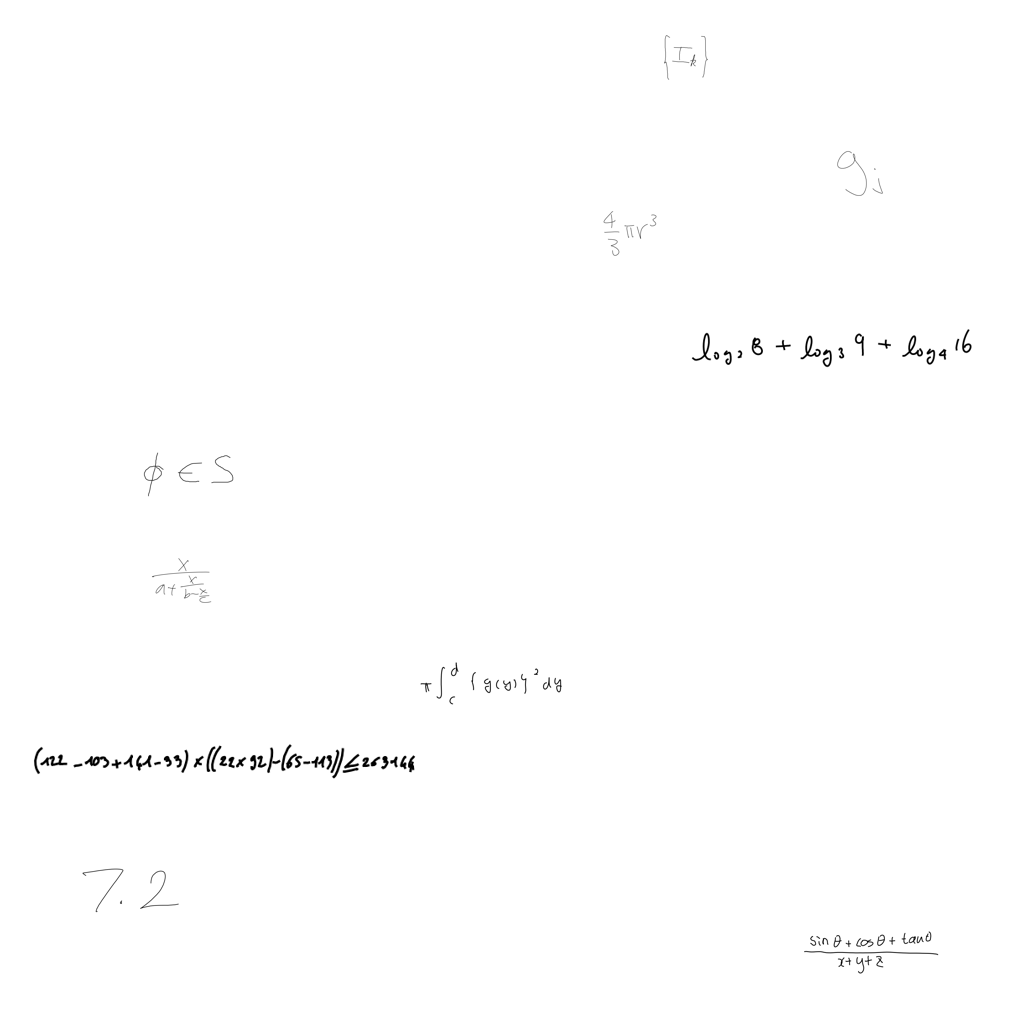 {I_k}
g_j
\frac{4}{3}πr^3
log_2 8 + log_3 9 + log_4 16
ϕ ∈ S
\frac{x}{a+\frac{x}{b-\frac{x}{c}}}
π∫_c^d {g(y)}^2 dy
(122-103+141-93)×((22×92)-(65-113))≤263144
7.2
\frac{sin θ + cos θ + tan θ}{x+y+z}